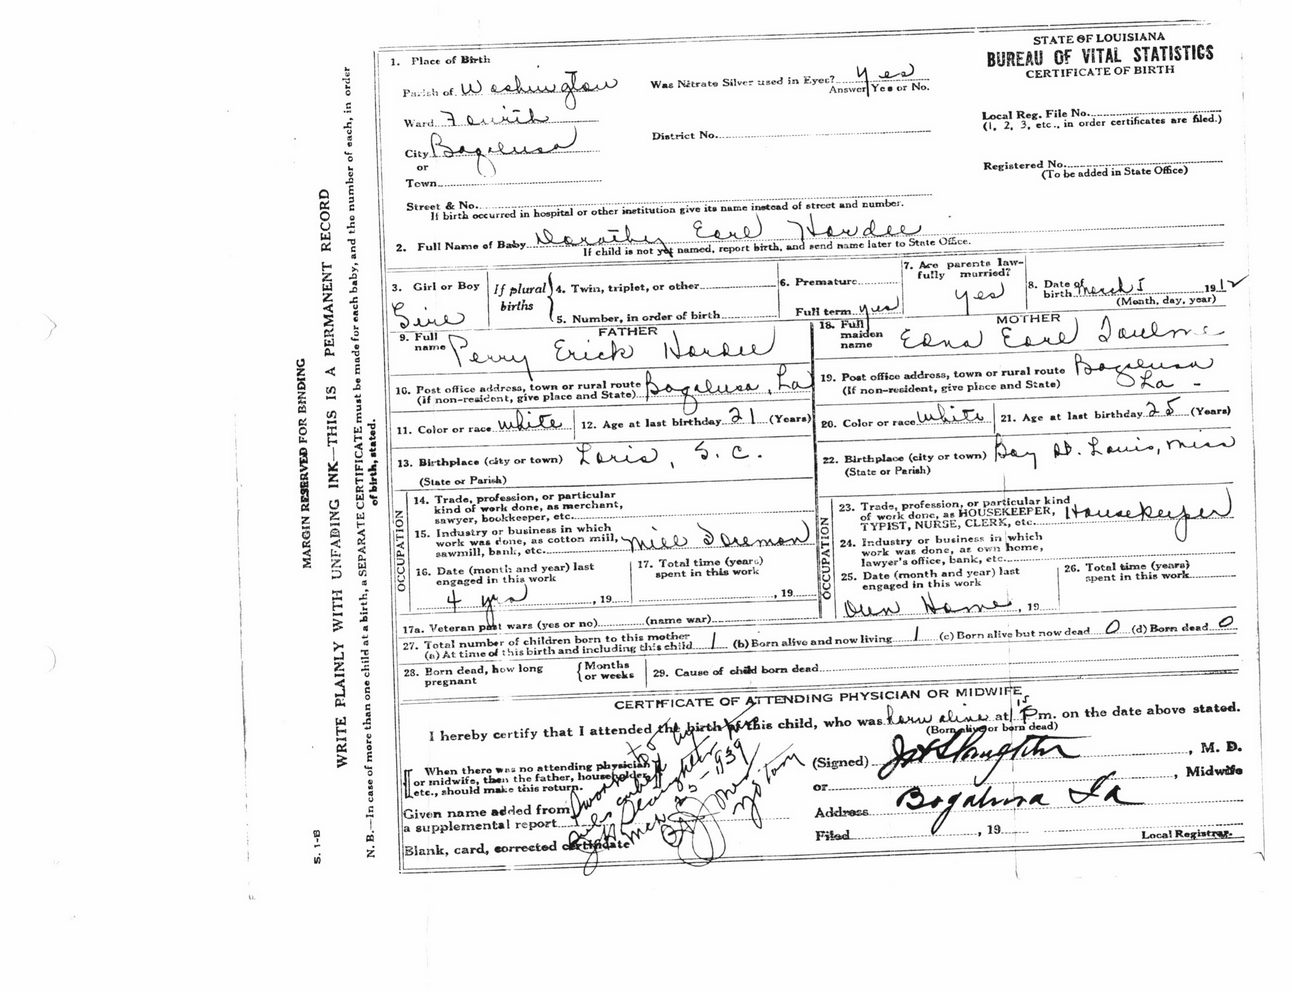 STATE OF LOUISIANA
BUREAU OF VITAL STATISTICS
CERTIFICATE OF BIRTH
1. Place of Birth
Parish of Washington
Was Nitrate Silver used in Eyes? Yes
Answer Yes or No.
Ward Fourth
Local Reg. File No.
(1, 2, 3, etc., in order certificates are filed.)
District No.
City Bogalusa
or
Town
Registered No.
(To be added in State Office)
Street & No.
If birth occurred in hospital or other institution give its name instead of street and number.
2. Full Name of Baby Dorothy Earl Hardee
If child is not yet named, report birth, and send name later to State Office.
3. Girl or Boy
If plural births
4. Twin, triplet, or other
5. Number, in order of birth
6. Premature
Full term yes
7. Are parents lawfully married?
yes
8. Date of birth March 5 1912
(Month, day, year)
FATHER
9. Full name Perry Erick Hardee
10. Post office address, town or rural route
(If non-resident, give place and State) Bogalusa, La
11. Color or race white
12. Age at last birthday 21 (Years)
13. Birthplace (city or town) Loris, S. C.
(State or Parish)
OCCUPATION
14. Trade, profession, or particular
kind of work done, as merchant,
sawyer, bookkeeper, etc.
15. Industry or business in which
work was done, as cotton mill,
sawmill, bank, etc. Mill Foreman
16. Date (month and year) last
engaged in this work
4 yrs , 19
17. Total time (years)
spent in this work
, 19
17a. Veteran past wars (yes or no) (name war)
MOTHER
18. Full maiden name Edna Earl Toulme
19. Post office address, town or rural route
(If non-resident, give place and State) Bogalusa La -
20. Color or race white
21. Age at last birthday 25 (Years)
22. Birthplace (city or town) Bay St. Louis, Miss
(State or Parish)
OCCUPATION
23. Trade, profession, or particular kind
of work done, as HOUSEKEEPER,
TYPIST, NURSE, CLERK, etc. Housekeeper
24. Industry or business in which
work was done, as own home,
lawyer's office, bank, etc.
25. Date (month and year) last
engaged in this work
Own Home , 19
26. Total time (years)
spent in this work
27. Total number of children born to this mother
(a) At time of this birth and including this child 1 (b) Born alive and now living 1 (c) Born alive but now dead 0 (d) Born dead 0
28. Born dead, how long
pregnant
Months
or weeks
29. Cause of child born dead
CERTIFICATE OF ATTENDING PHYSICIAN OR MIDWIFE
I hereby certify that I attended the birth of this child, who was born alive at 1 15 P m. on the date above stated.
(Born alive or born dead)
When there was no attending physician
or midwife, then the father, householder,
etc., should make this return.
Given name added from
a supplemental report
Blank, card, corrected certificate
Sworn to
1939
Notary
(Signed) Slaughter , M. D.
or , Midwife
Address Bogalusa La
Filed , 19
Local Registrar.
MARGIN RESERVED FOR BINDING
WRITE PLAINLY WITH UNFADING INK—THIS IS A PERMANENT RECORD
N. B.—In case of more than one child at a birth, a SEPARATE CERTIFICATE must be made for each baby, and the number of each, in order
of birth, stated.
S. 1-B